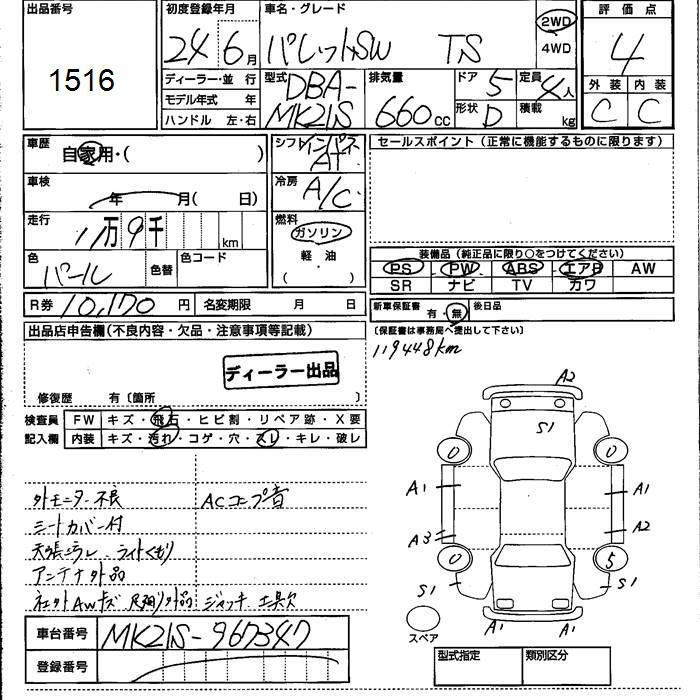 出品番号 初度登録年月 車名・グレード 評価点
1516 24 6月 パレットSW TS 2WD 4WD 4
ディーラー・並行 型式 DBA-MK21S 排気量 660cc ドア 5 定員 4人 外装 内装
モデル年式 年 形状 D 積載 kg C C
ハンドル 左・右
車歴 自家用・( ) シフト インパネAT セールスポイント(正常に機能するものに限ります)
車検 年 月( 日) 冷房 A/C
走行 11万9千 km 燃料 ガソリン 軽油 ( )
装備品(純正品に限り○をつけてください)
色 パール 色替 色コード PS PW ABS エアB AW
SR ナビ TV カワ
R券 10,170 円 名変期限 月 日 新車保証書 有・無 後日品
出品店申告欄(不良内容・欠品・注意事項等記載) (保証書は事務局へ提出して下さい)
119448km
ディーラー出品
修復歴 有〔箇所 〕
検査員 FW キズ・飛石・ヒビ割・リペア跡・X要
記入欄 内装 キズ・汚れ・コゲ・穴・スレ・キレ・破レ
A2
S1
0 0
A1 A1
A3 A2
0 5
S1 S1
A1 A1
スペア
外モニター不良 ACコンプ音
シートカバー付
天張ヨゴレ ライトくもり
アンテナ外品
ジャッキ 工具欠
車台番号 MK21S-967347
登録番号
型式指定 類別区分